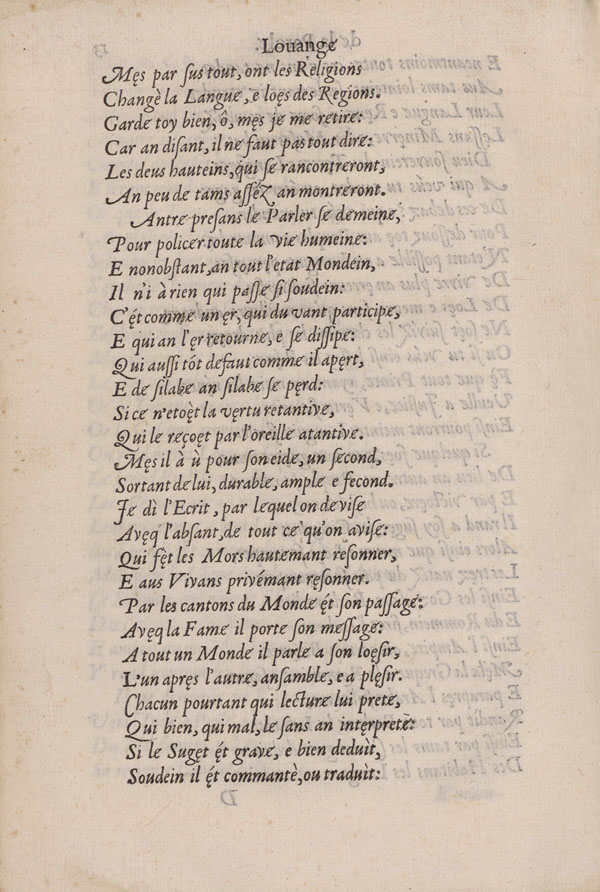 Louange
Męs par ſus tout, ont les Religions
Changè la Langue, e loęs des Regions.
Garde toy bien, ô, męs je me retire:
Car an diſant, il ne faut pas tout dire:
Les deus hauteins, qui ſe rancontreront,
An peu de tams aſſéz an montreront.
Antre preſans le Parler ſe demeine,
Pour policer toute la vie humeine:
E nonobſtant, an tout l'etat Mondein,
Il n'i à rien qui paſſe ſi ſoudein:
C'ęt comme un ęr, qui du vant participe,
E qui an l'ęr retourne, e ſe diſsipe:
Qui auſsi tót defaut comme il apęrt,
E de ſilabe an ſilabe ſe pęrd:
Si ce n'etoęt la vęrtu retantive,
Qui le reçoęt par l'oreille atantive.
Męs il à ù pour ſon eide, un ſecond,
Sortant de lui, durable, ample e fecond.
Je dì l'Ecrit, par lequel on deviſe
Avęq l'abſant, de tout ce qu'on aviſe:
Qui fęt les Mors hautemant reſonner,
E aus Vivans privémant ręſonner.
Par les cantons du Monde ęt ſon paſſage:
Avęq la Fame il porte ſon meſſage:
A tout un Monde il parle a ſon loęſir,
L'un apręs l'autre, anſamble, e a plęſir.
Chacun pourtant qui lecture lui prete,
Qui bien, qui mal, le ſans an intęrprete:
Si le Sugęt ęt grave, e bien deduìt,
Soudein il ęt commantè, ou traduìt:
D